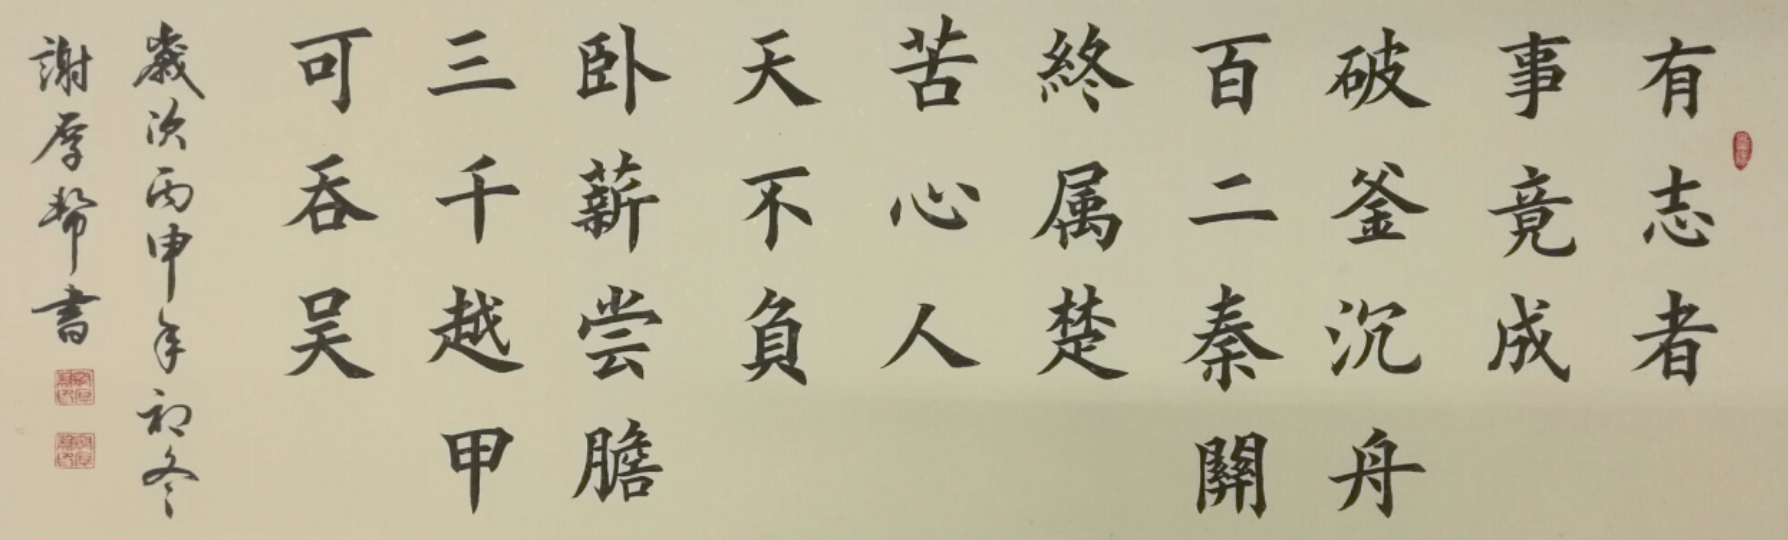 有志者
事竟成
破釜沉舟
百二秦關
終属楚
苦心人
天不負
卧薪尝膽
三千越甲
可吞吴
歲次丙申年初冬
謝厚幣書